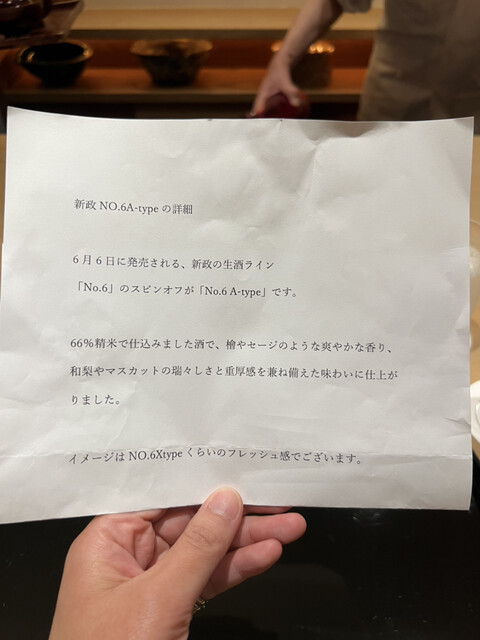 新政 NO.6A-type の詳細
6月6日に発売される、新政の生酒ライン
「No.6」のスピンオフが「No.6 A-type」です。
66%精米で仕込みました酒で、檜やセージのような爽やかな香り、
和梨やマスカットの瑞々しさと重厚感を兼ね備えた味わいに仕上が
りました。
イメージは NO.6Xtype くらいのフレッシュ感でございます。